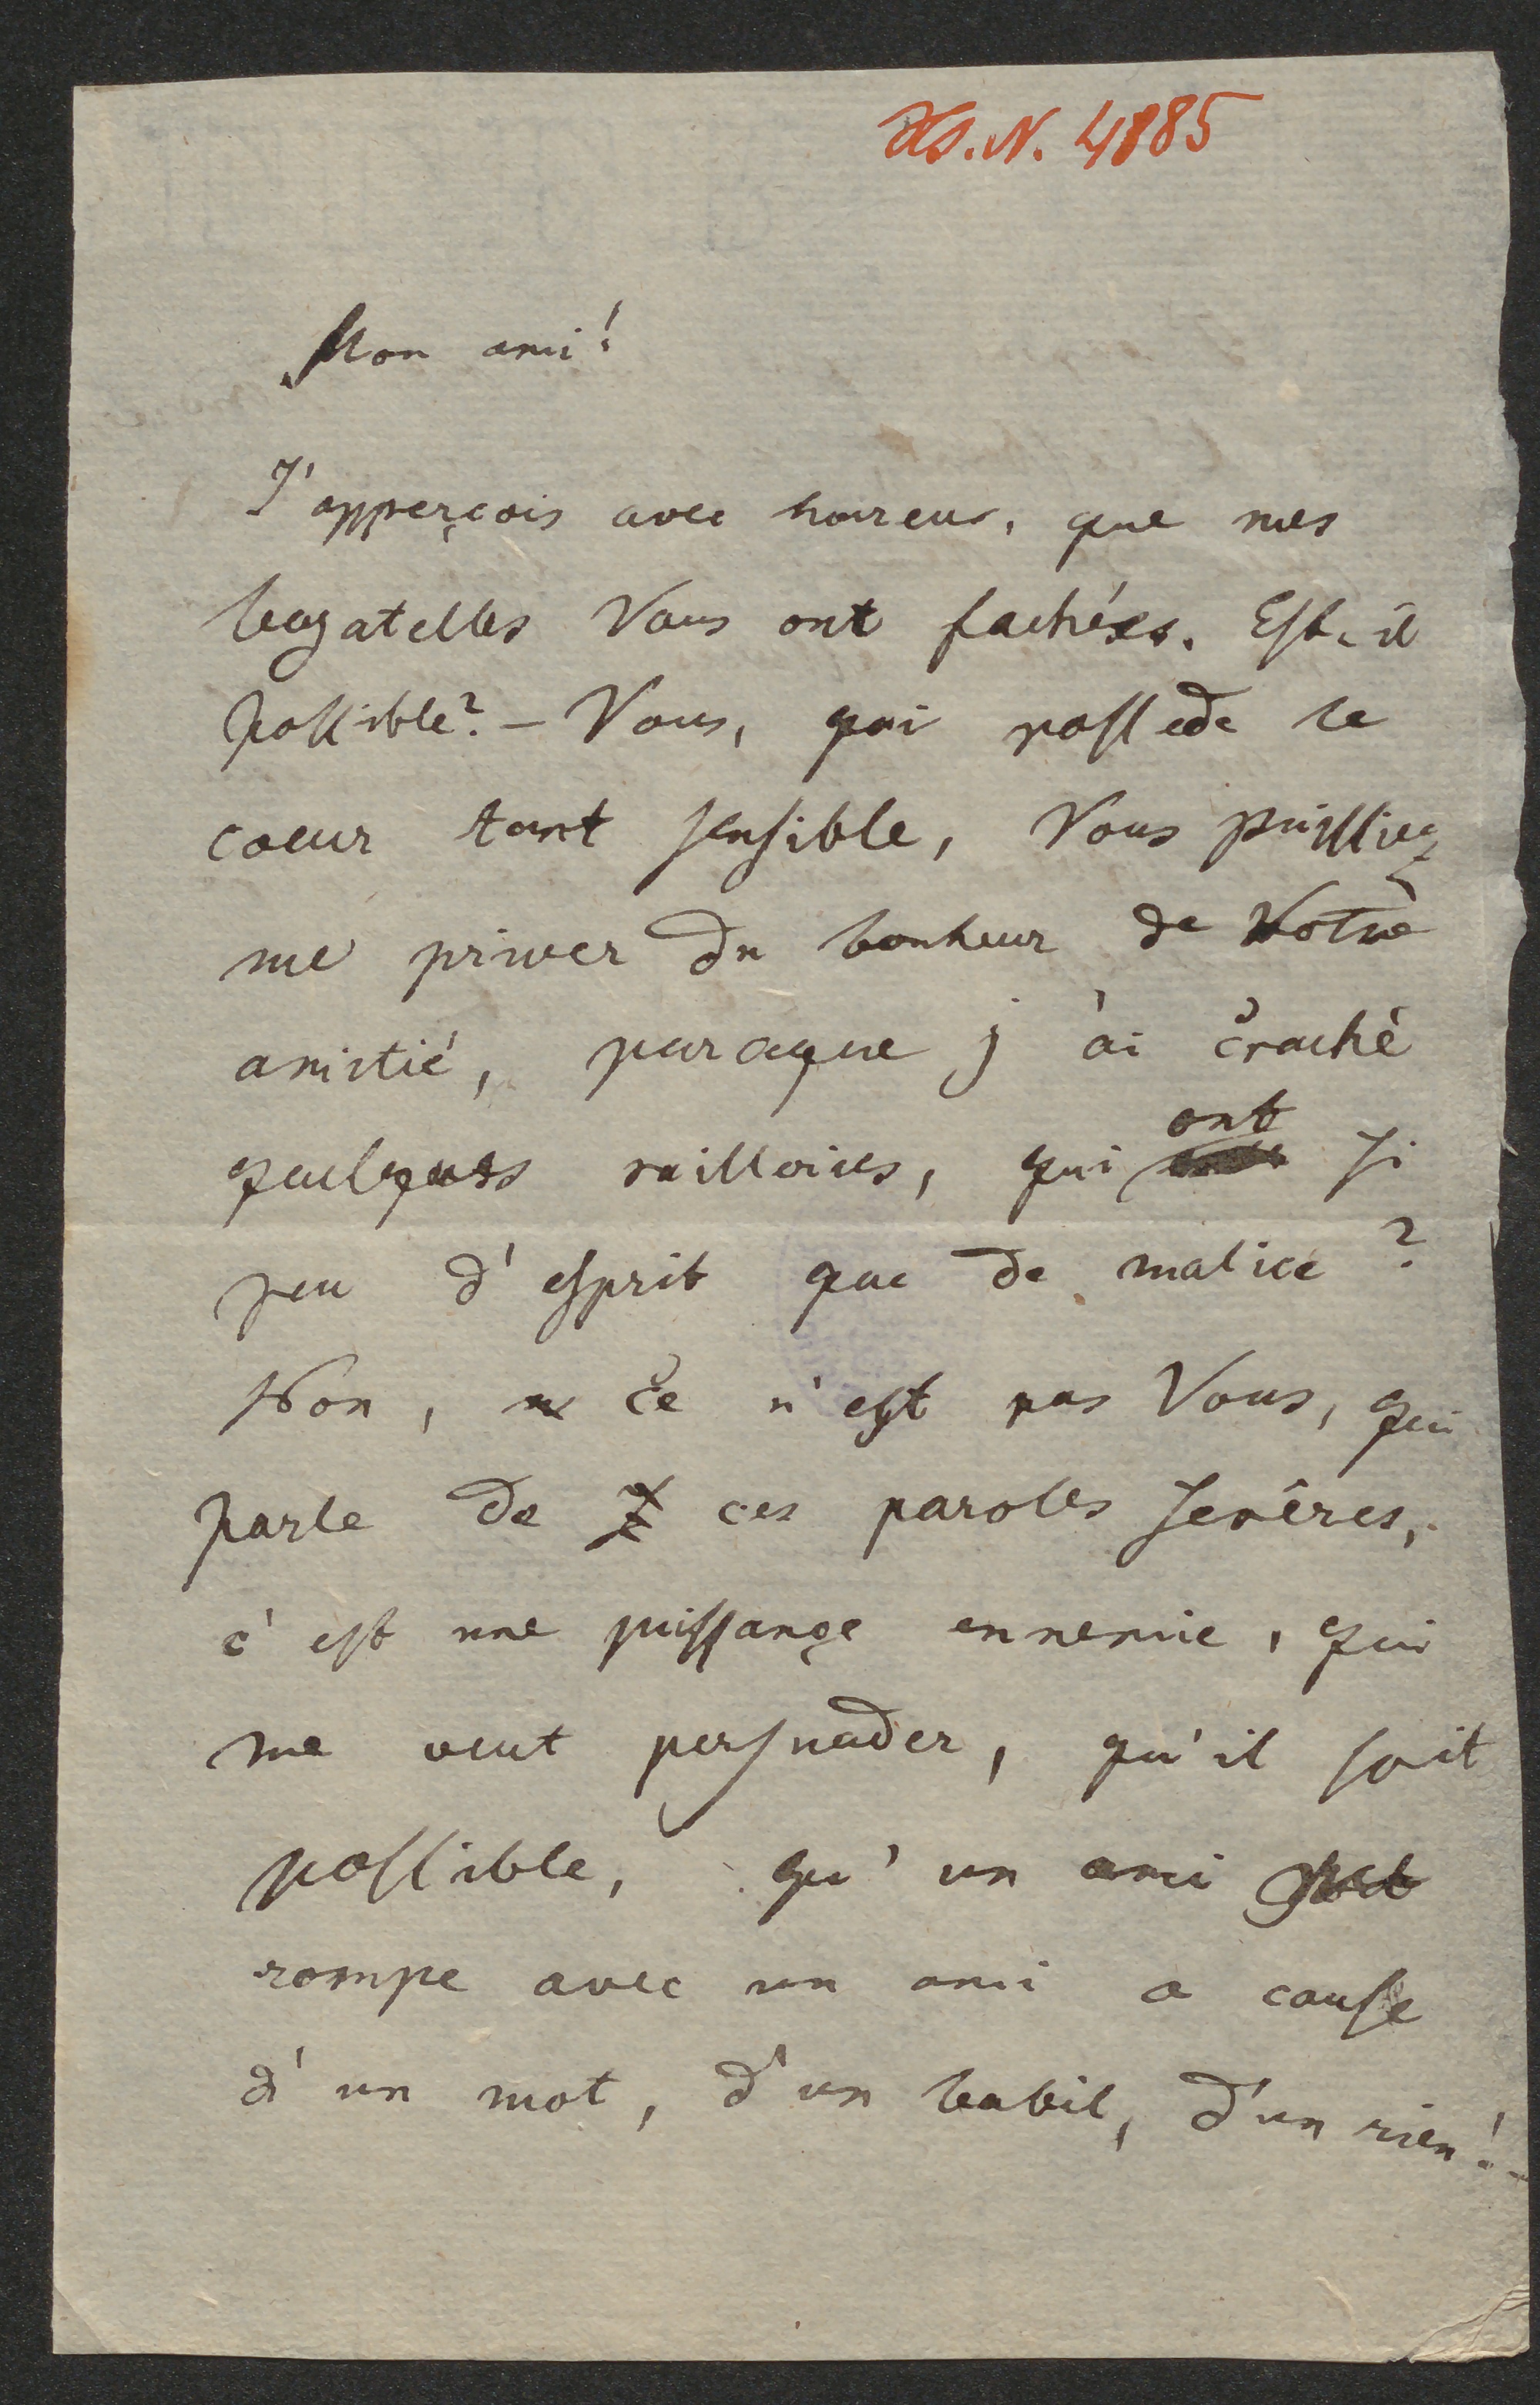 Hs. N. 4885
Mon ami!
J'apperçois avec horeur, que mes
bagatelles Vous ont fachées. Est-il
possible? – Vous, qui possede le
coeur tant sensible, Vous puissiez
me priver du bonheur de Votre
amitié, parceque j'ai craché
quelques railloires, qui ont si
peu d'esprit que de malice?
Non, ce n'est pas Vous, qui
parle de ces paroles sevêres,
c'est une puissançe ennemie, qui
me veut persuader, qu'il soit
possible, qu'un ami
rompe avec un ami a cause
d'un mot, d'un babil, d'un rien! –